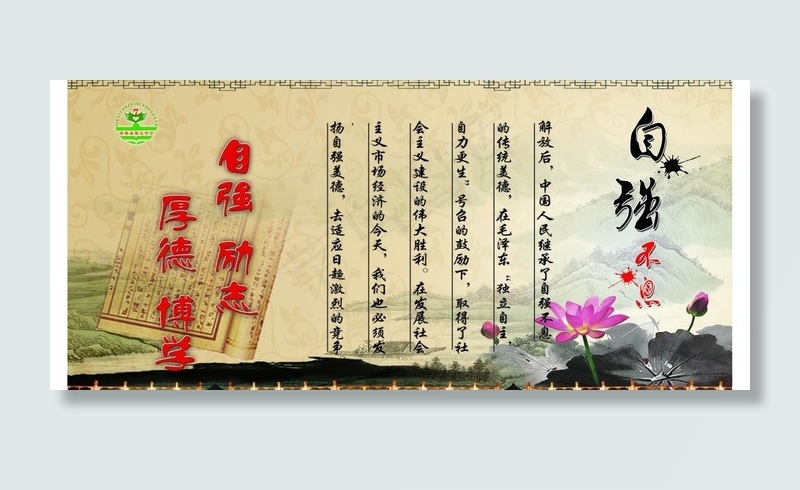 自强
不息
解放后，中国人民继承了自强不息
的传统美德，在毛泽东“独立自主，
自力更生”号召的鼓励下，取得了社
会主义建设的伟大胜利。在发展社会
主义市场经济的今天，我们也必须发
扬自强美德，去适应日趋激烈的竞争
自强 励志
厚德 博学